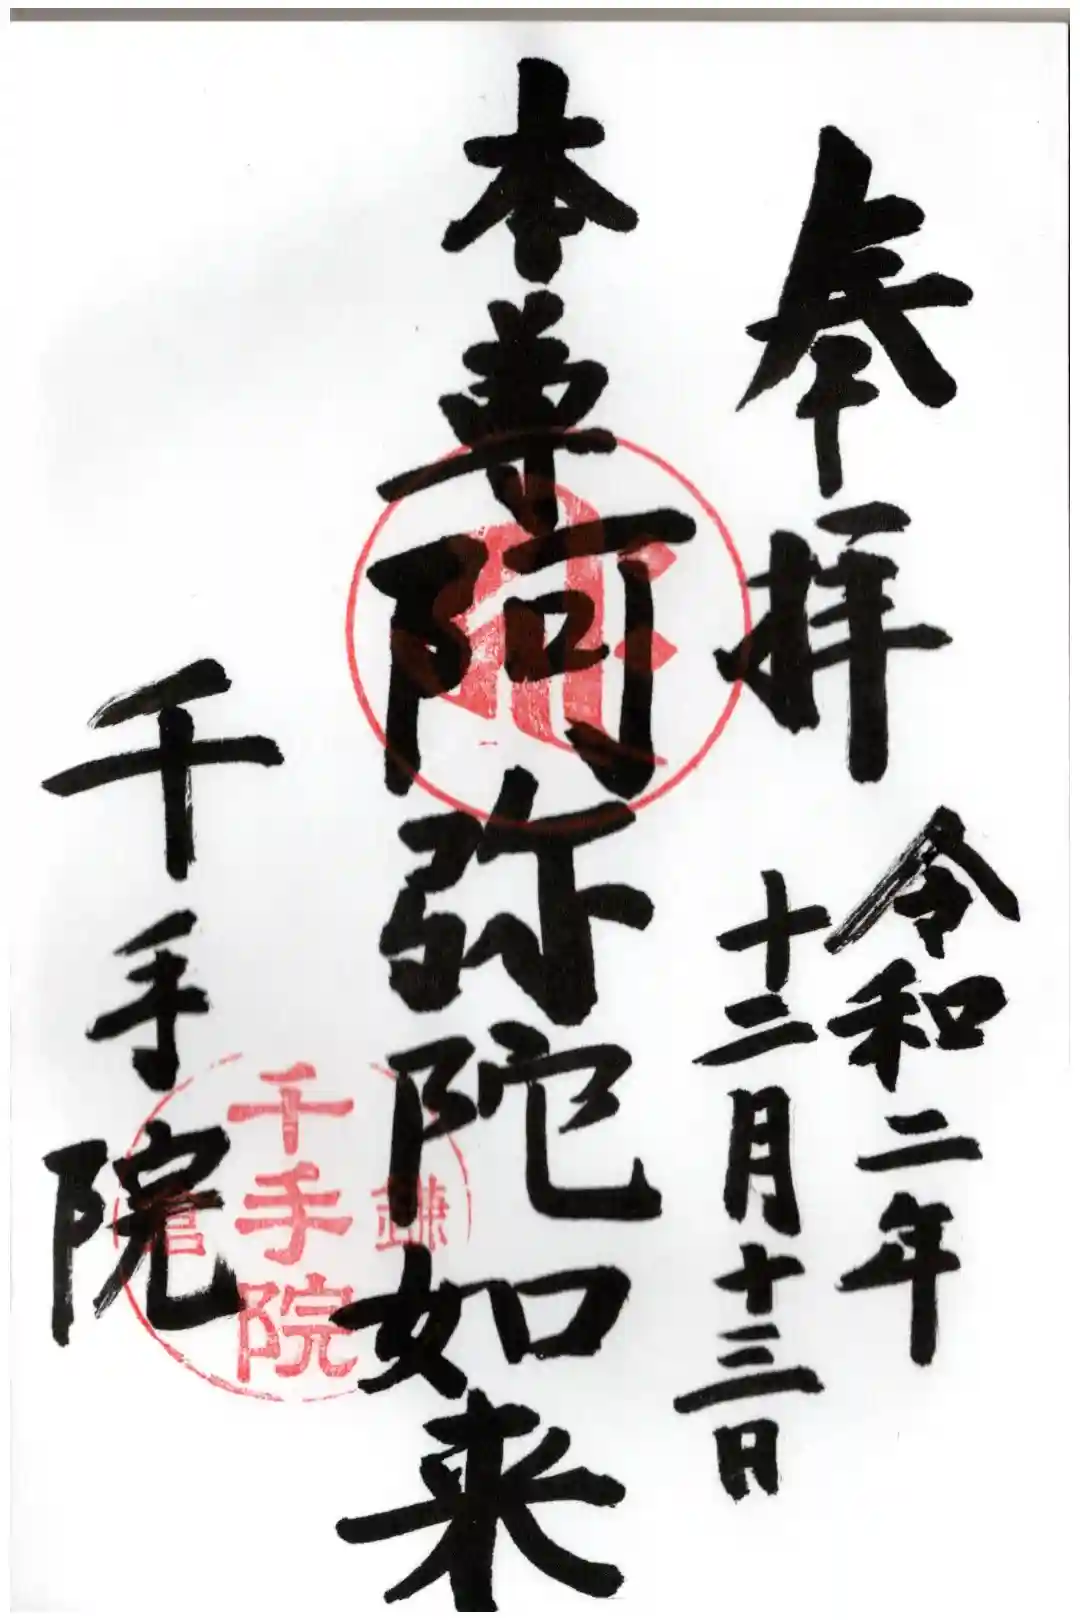 奉拝
令和二年
十二月十三日
本尊阿弥陀如来
千手院
鎌倉
千手院